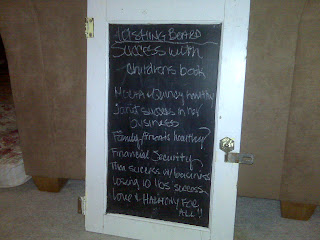 WISHING BOARD
Success with
childrens book
Health & Quincy healthy
Janets success in her
business
Family, friends healthy
Financial Security
success w/ business
Losing 10 lbs success
Love & HARMONY FOR
ALL!!